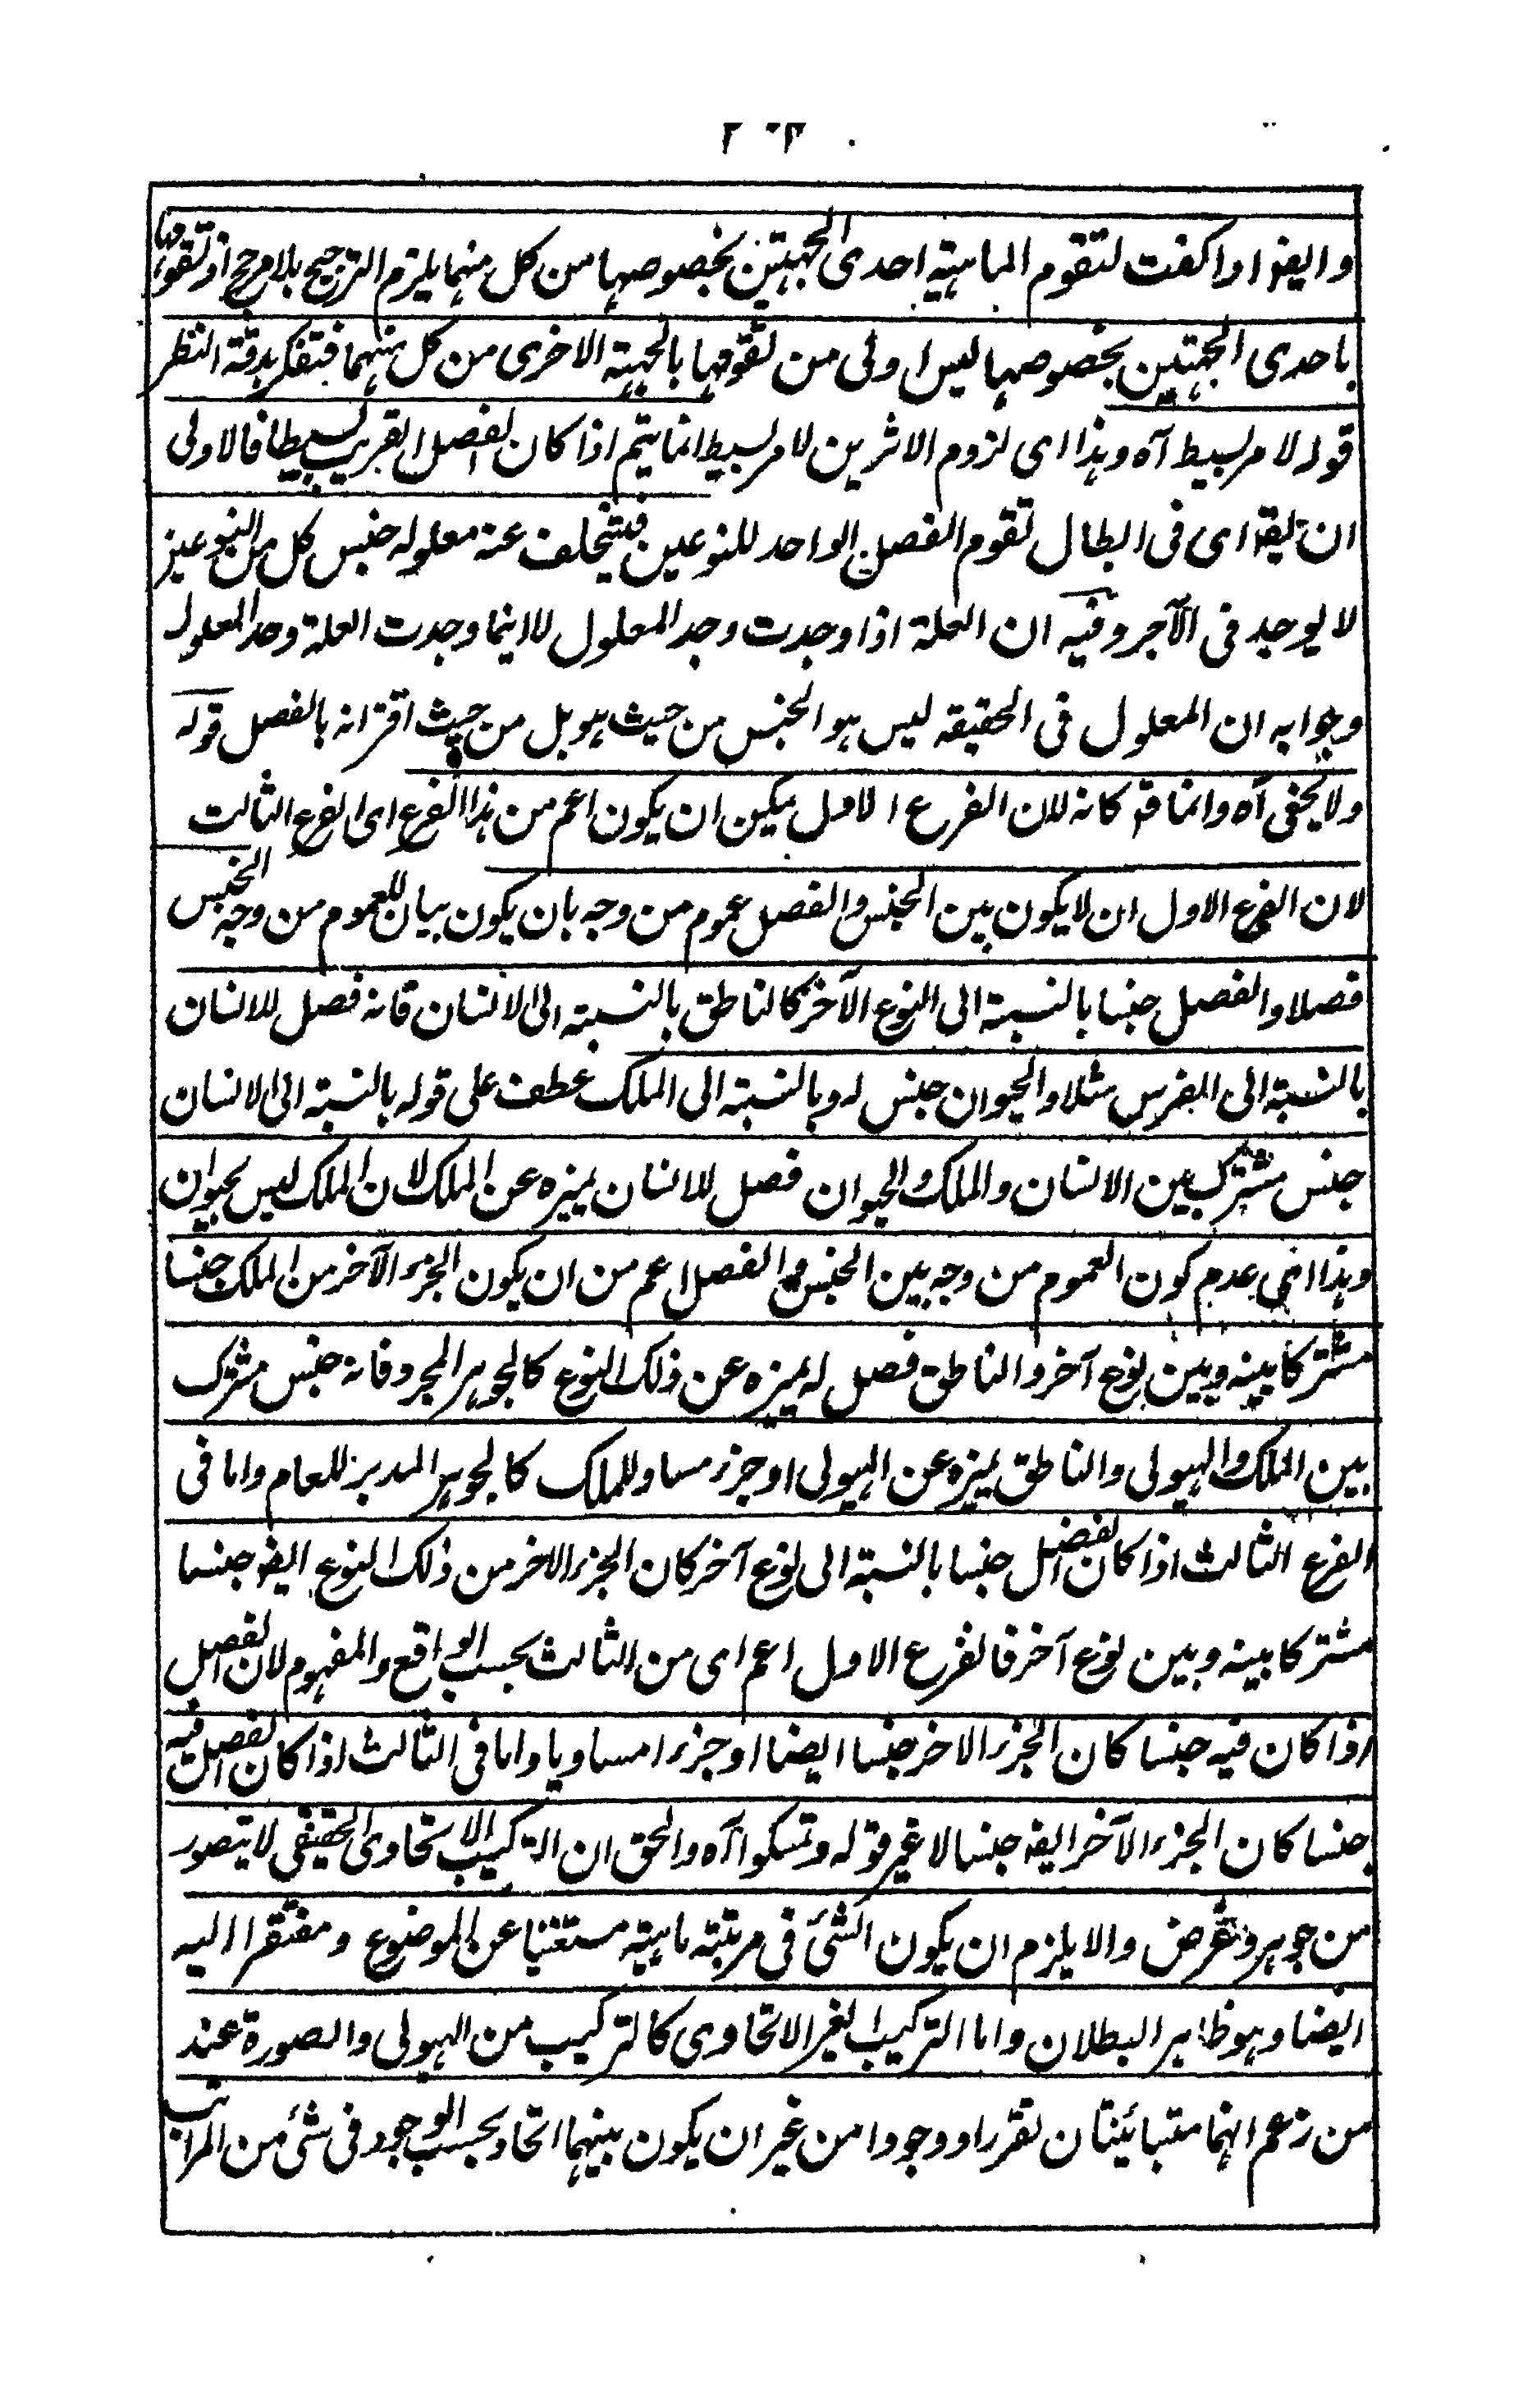 وايضا اذا كفت لتقوم الماهية احدى الجهتين بخصوصها من كل منهما يلزم الترجيح بلا مرجح اذ تقومها
باحدى الجهتين بخصوصها ليس اولى من تقومها بالجهة الاخرى من كل منهما فتفكر بدقة النظر
قوله لامر بسيط آه وهذا اى لزوم الاثرين لامر بسيط انما يتم اذا كان الفصل القريب بسيطا فالاولى
ان يقه اى فى ابطال تقوم الفصل الواحد للنوعين فيتخلف عنه معلوله جنس كل من النوعين
لا يوجد فى الآخر وفيه ان العلة اذا وجدت وجد المعلول لا اينما وجدت العلة وجد المعلول
وجوابه ان المعلول فى الحقيقة ليس هو الجنس من حيث هو بل من حيث اقترانه بالفصل قوله
ولا يخفى آه وانما قه كانه لان الفرع الاول يمكن ان يكون اعم من هذا الفرع اى الفرع الثالث
لان الفرع الاول ان لا يكون بين الجنس والفصل عموم من وجه بان يكون بيان للعموم من وجه الجنس
فصلا والفصل جنسا بالنسبة الى النوع الآخر كالناطق بالنسبة الى الانسان فانه فصل للانسان
بالنسبة الى الفرس مثلا والحيوان جنس له وبالنسبة الى الملك عطف على قوله بالنسبة الى الانسان
جنس مشترك بين الانسان والملك والحيوان فصل للانسان يميزه عن الملك لان الملك ليس بحيوان
وهذا اى عدم كون العموم من وجه بين الجنس والفصل اعم من ان يكون الجزء الآخر من الملك جنسا
مشتركا بينه وبين نوع آخر والناطق فصل له يميزه عن ذلك النوع كالجوهر المجرد فانه جنس مشترك
بين الملك والهيولى والناطق يميزه عن الهيولى او جزء مساو للملك كالجوهر المدبر للعام واما فى
الفرع الثالث اذا كان الفصل جنسا بالنسبة الى نوع آخر كان الجزء الاخر من ذلك النوع ايضه جنسا
مشتركا بينه وبين نوع آخر فالفرع الاول اعم اى من الثالث بحسب الواقع والمفهوم لان الفصل
اذا كان فيه جنسا كان الجزء الاخر جنسا ايضا او جزءا مساويا واما فى الثالث اذا كان الفصل فيه
جنسا كان الجزء الآخر ايضه جنسا لا غير قوله وتمسكوا آه والحق ان التركيب الاتحادى الحقيقى لا يتصور
من جوهر وعرض والا يلزم ان يكون الشئ فى مرتبة ماهيته مستغنيا عن الموضوع ومفتقرا اليه
ايضا وهو ظاهر البطلان واما التركيب الغير الاتحادى كالتركيب من الهيولى والصورة عند
من زعم انهما متبائنتان تقررا ووجودا من غير ان يكون بينهما اتحاد بحسب الوجود فى شئ من المراتب